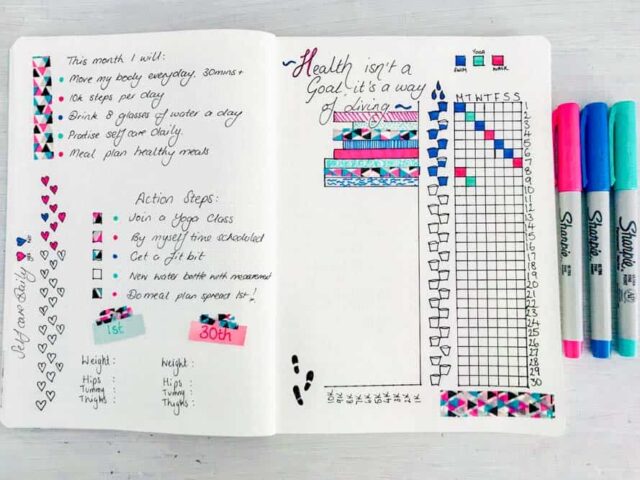 This month I will:
Move my body everyday. 30mins+
10k steps per day
Drink 8 glasses of water a day
Practise self care daily.
Meal plan healthy meals
Action Steps:
Join a Yoga Class
By myself time scheduled
Get a fit bit
New water bottle with measurement
Do meal plan spread 1st!
Self care Daily
yes
no
1st
30th
Weight :
Hips :
Tummy :
Thighs :
Weight :
Hips :
Tummy :
Thighs :
Health isn't a
Goal, it's a way
of living
YOGA
SWIM
WALK
M T W T F S S
1
2
3
4
5
6
7
8
9
10
11
12
13
14
15
16
17
18
19
20
21
22
23
24
25
26
27
28
29
30
10K 9K 8K 7K 6K 5K 4K 3K 2K 1K
Sharpie
Sharpie
Sharpie